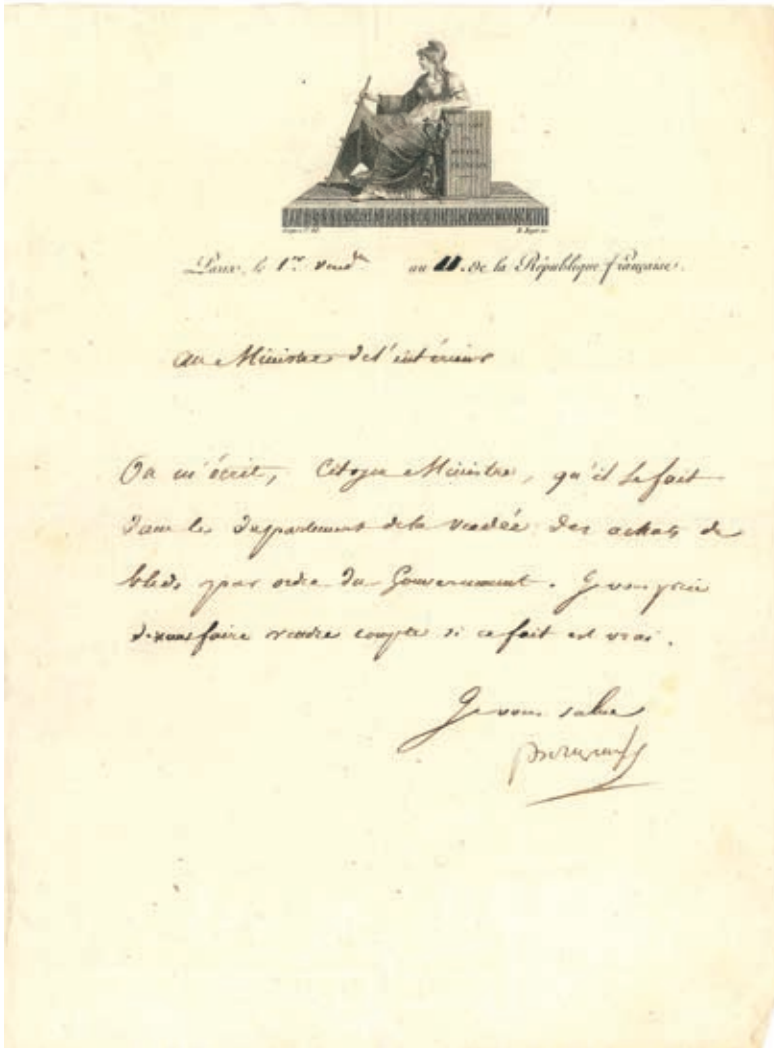 AU NOM
DU
PEUPLE
FRANÇAIS
Paris, le 1er vendre an 11. de la République française.
au Ministre de l'intérieur
On m'écrit, Citoyen Ministre, qu'il se fait
dans le département de la vendée des achats de
bleds par ordre du Gouvernement. Je vous prie
de vous faire rendre compte si ce fait est vrai.
Je vous salue